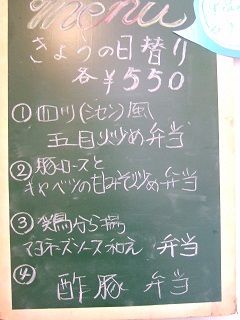 menu
きょうの日替り
各¥550
①四川(シセン)風
五目炒め弁当
②豚ロースと
キャベツの甘みそ炒め弁当
③鶏から揚
マヨネーズソース和え 弁当
④
酢豚 弁当